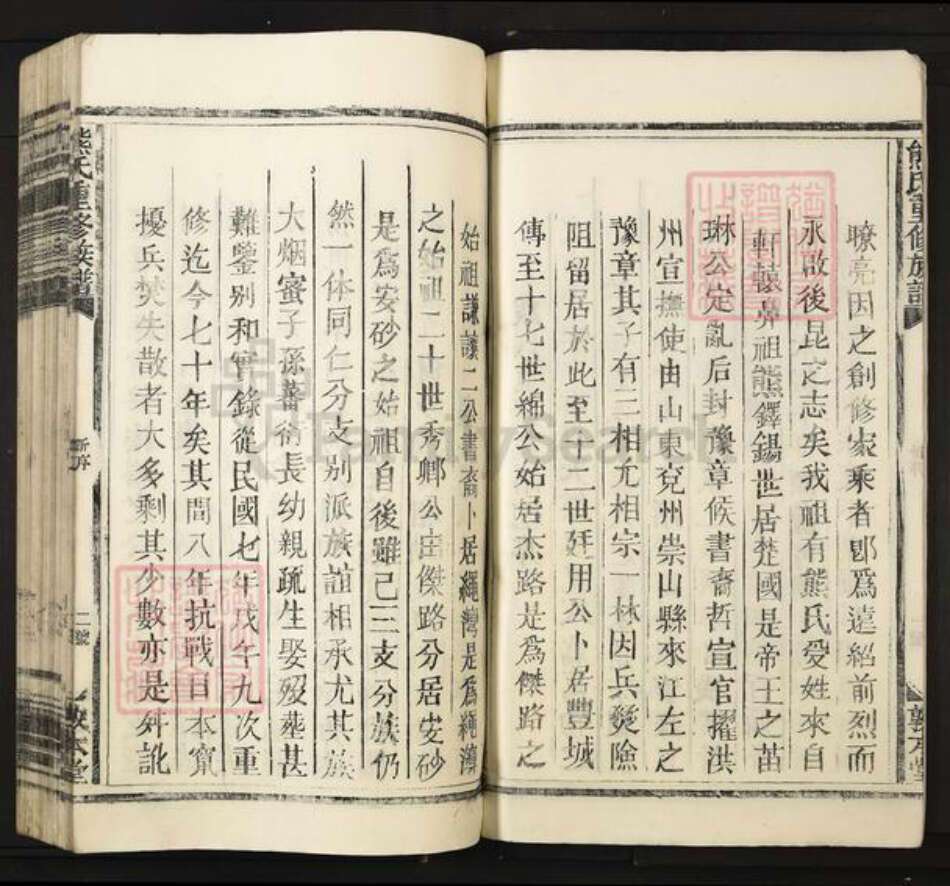 瞭亮因之創修家乘者即爲遠紹前烈而
永啟後昆之志矣我祖有熊氏受姓來自
軒轅鼻祖熊鐸錫世居楚國是帝王之苗
琳公定亂后封豫章候書裔哲宣官擢洪
州宣撫使由山東兗州崇山縣來江左之
豫章其子有三相尤相宗一林因兵燹險
阻留居於此至十二世廷用公卜居豐城
傳至十七世綿公始居杰路是爲傑路之
始祖謙讓二公書裔卜居繩灣是爲繩灣
之始祖二十世秀卿公由傑路分居安砂
是爲安砂之始祖自後雖已三支分族仍
然一体同仁分支别派族誼相承尤其族
大烟蜜子孫蕃衍長幼親疏生娶殁塟甚
難鑒别和實錄從民國七年戊午九次重
修迄今七十年矣其間八年抗戰日本竄
擾兵焚失散者大多剩其少數亦是舛訛
熊氏重修族譜
新序
二號
敦本堂
熊氏重修族譜
敦本堂